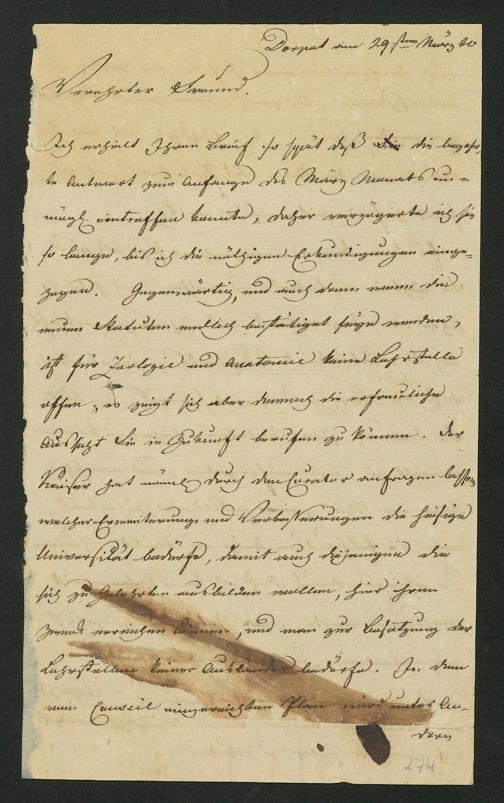 Dorpat am 29sten März 20
Verehrter Freund.
Ich erhielt Ihren Brief so spät daß die begehr,
te Antwort zum Anfange des März Monats un=
mögl. eintreffen konnte, daher verzögerte ich sie
so lange, bis ich die nöthigen Erkundigungen einge=
zogen. Gegenwärtig, und auch dann wenn die
neuen Statuten endlich bestätiget seyn werden,
ist für Zoologie und Anatomie keine Lehrstelle
offen; es zeigt sich aber dennoch die erfreuliche
Aussicht Sie in Zukunft berufen zu können. Der
Kaiser hat näml. durch den Curator anfragen lassen
welcher Erweiterung und Verbesserungen die hiesige
Universität bedürfe, damit auch diejenigen die
sich zu Gelehrten ausbilden wollen, hier ihren
Zweck erreichen können, und man zur Besetzung der
Lehrstellen keiner Ausländer bedürfe. In dem
vom Conseil eingereichten Plan wird unter An-
dern
274